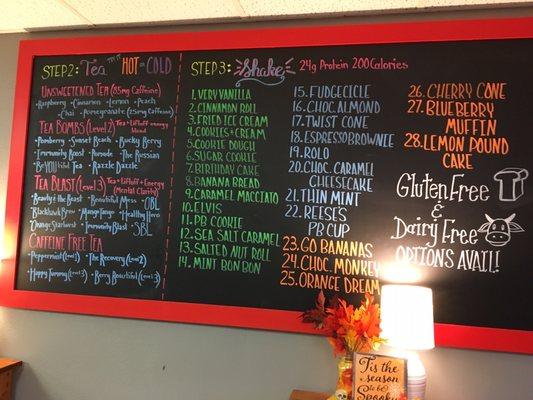 STEP 2: Tea HOT or COLD
UNSWEETENED TEA (85mg Caffeine)
•Raspberry •Cinnamon •Lemon •Peach
•Chai •Pomegranate
TEA BOMBS (Level 2) Tea + Liftoff energy blend
•Pomberry •Sunset Beach •Bucky Berry
•Immunity Boost •The Russian
•BeYOU tiful Tea •Razzle Dazzle
TEA BLAST (Level 3) Tea + Liftoff + Energy (Mental Clarity)
•Beauty & the Beast •Beautiful Mess •OBL
•Mango Tango •Healthy Hero
•Orange Starburst •Immunity Blast •SBL
CAFFEINE FREE TEA
•Peppermint (Level 1) •The Recovery (Level 2)
•Happy Tummy (Level 3) •Berry Beautiful (Level 3)
STEP 3: Shake 24g Protein 200 Calories
1. VERY VANILLA
2. CINNAMON ROLL
3. FRIED ICE CREAM
4. COOKIES + CREAM
5. COOKIE DOUGH
6. SUGAR COOKIE
7. BIRTHDAY CAKE
8. BANANA BREAD
9. CARAMEL MACCIATO
10. ELVIS
11. PB COOKIE
12. SEA SALT CARAMEL
13. SALTED NUT ROLL
14. MINT BON BON
15. FUDGECICLE
16. CHOC. ALMOND
17. TWIST CONE
18. ESPRESSO BROWNIE
19. ROLO
20. CHOC. CARAMEL
CHEESECAKE
21. THIN MINT
22. REESE'S
PB CUP
23. GO BANANAS
24. CHOC. MONKEY
25. ORANGE DREAM
26. CHERRY CONE
27. BLUEBERRY
MUFFIN
28. LEMON POUND
CAKE
Gluten Free
&
Dairy Free
OPTIONS AVAIL!
Tis the
season
to be
Spooky